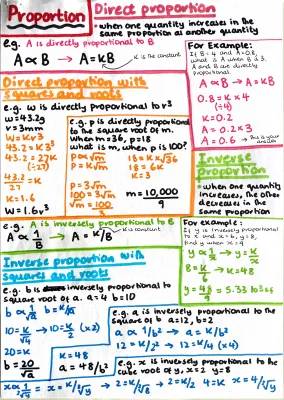 Proportion
Direct proportion
- when one quantity increases in the
same proportion as another quantity
e.g. A is directly proportional to B
A ∝ B → A = KB
K is the constant
For Example:
If B = 4 and A = 0.8,
what is A when B is 3.
A and B are directly
proportional
A ∝ B → A = KB
0.8 = K × 4
(÷4)
K = 0.2
A = 0.2 × 3
A = 0.6 → This is your
answer
Direct proportion with
squares and roots
e.g. w is directly proportional to r³
w = 43.2g
r = 3mm
W = Kr³
43.2 = K3³
43.2 = 27K
(÷27)
43.2/27 = K
K = 1.6
W = 1.6r³
e.g. p is directly proportional
to the square root of m.
When m = 36, p = 18
what is m, when p is 100?
p ∝ √m
p = K√m
18 = K × √36
18 = 6K
K = 3
P = 3√m
100 = 3√m
√m = 100/3
m = 10,000/9
Inverse
proportion
- when one quantity
increases, the other
decreases in the
same proportion
e.g. A is inversely proportional to B
A ∝ 1/B → A = K/B
K is constant
For example:
If y is inversely proportional
to x and x = 6, y = 8,
find y when x = 9
y ∝ 1/x → y = K/x
8 = K/6 → K = 48
y = 48/9 = 5.33 to 3sf
Inverse proportion with
squares and roots
e.g. b is inversely proportional to
square root of a. a = 4 b = 10
b ∝ 1/√a b = K/√a
10 = K/√4 → 10 = K/2 (×2)
20 = K
b = 20/√a
e.g. a is inversely proportional to the
square of b a = 12, b = 2
a ∝ 1/b² → a = K/b²
12 = K/2² → 12 = K/4 (×4)
K = 48
a = 48/b²
e.g. x is inversely proportional to the
cube root of y, x = 2 y = 8
x ∝ 1/∛y = x = K/∛y → 2 = K/∛8 → 2 = K/2 4 = K x = 4/∛y